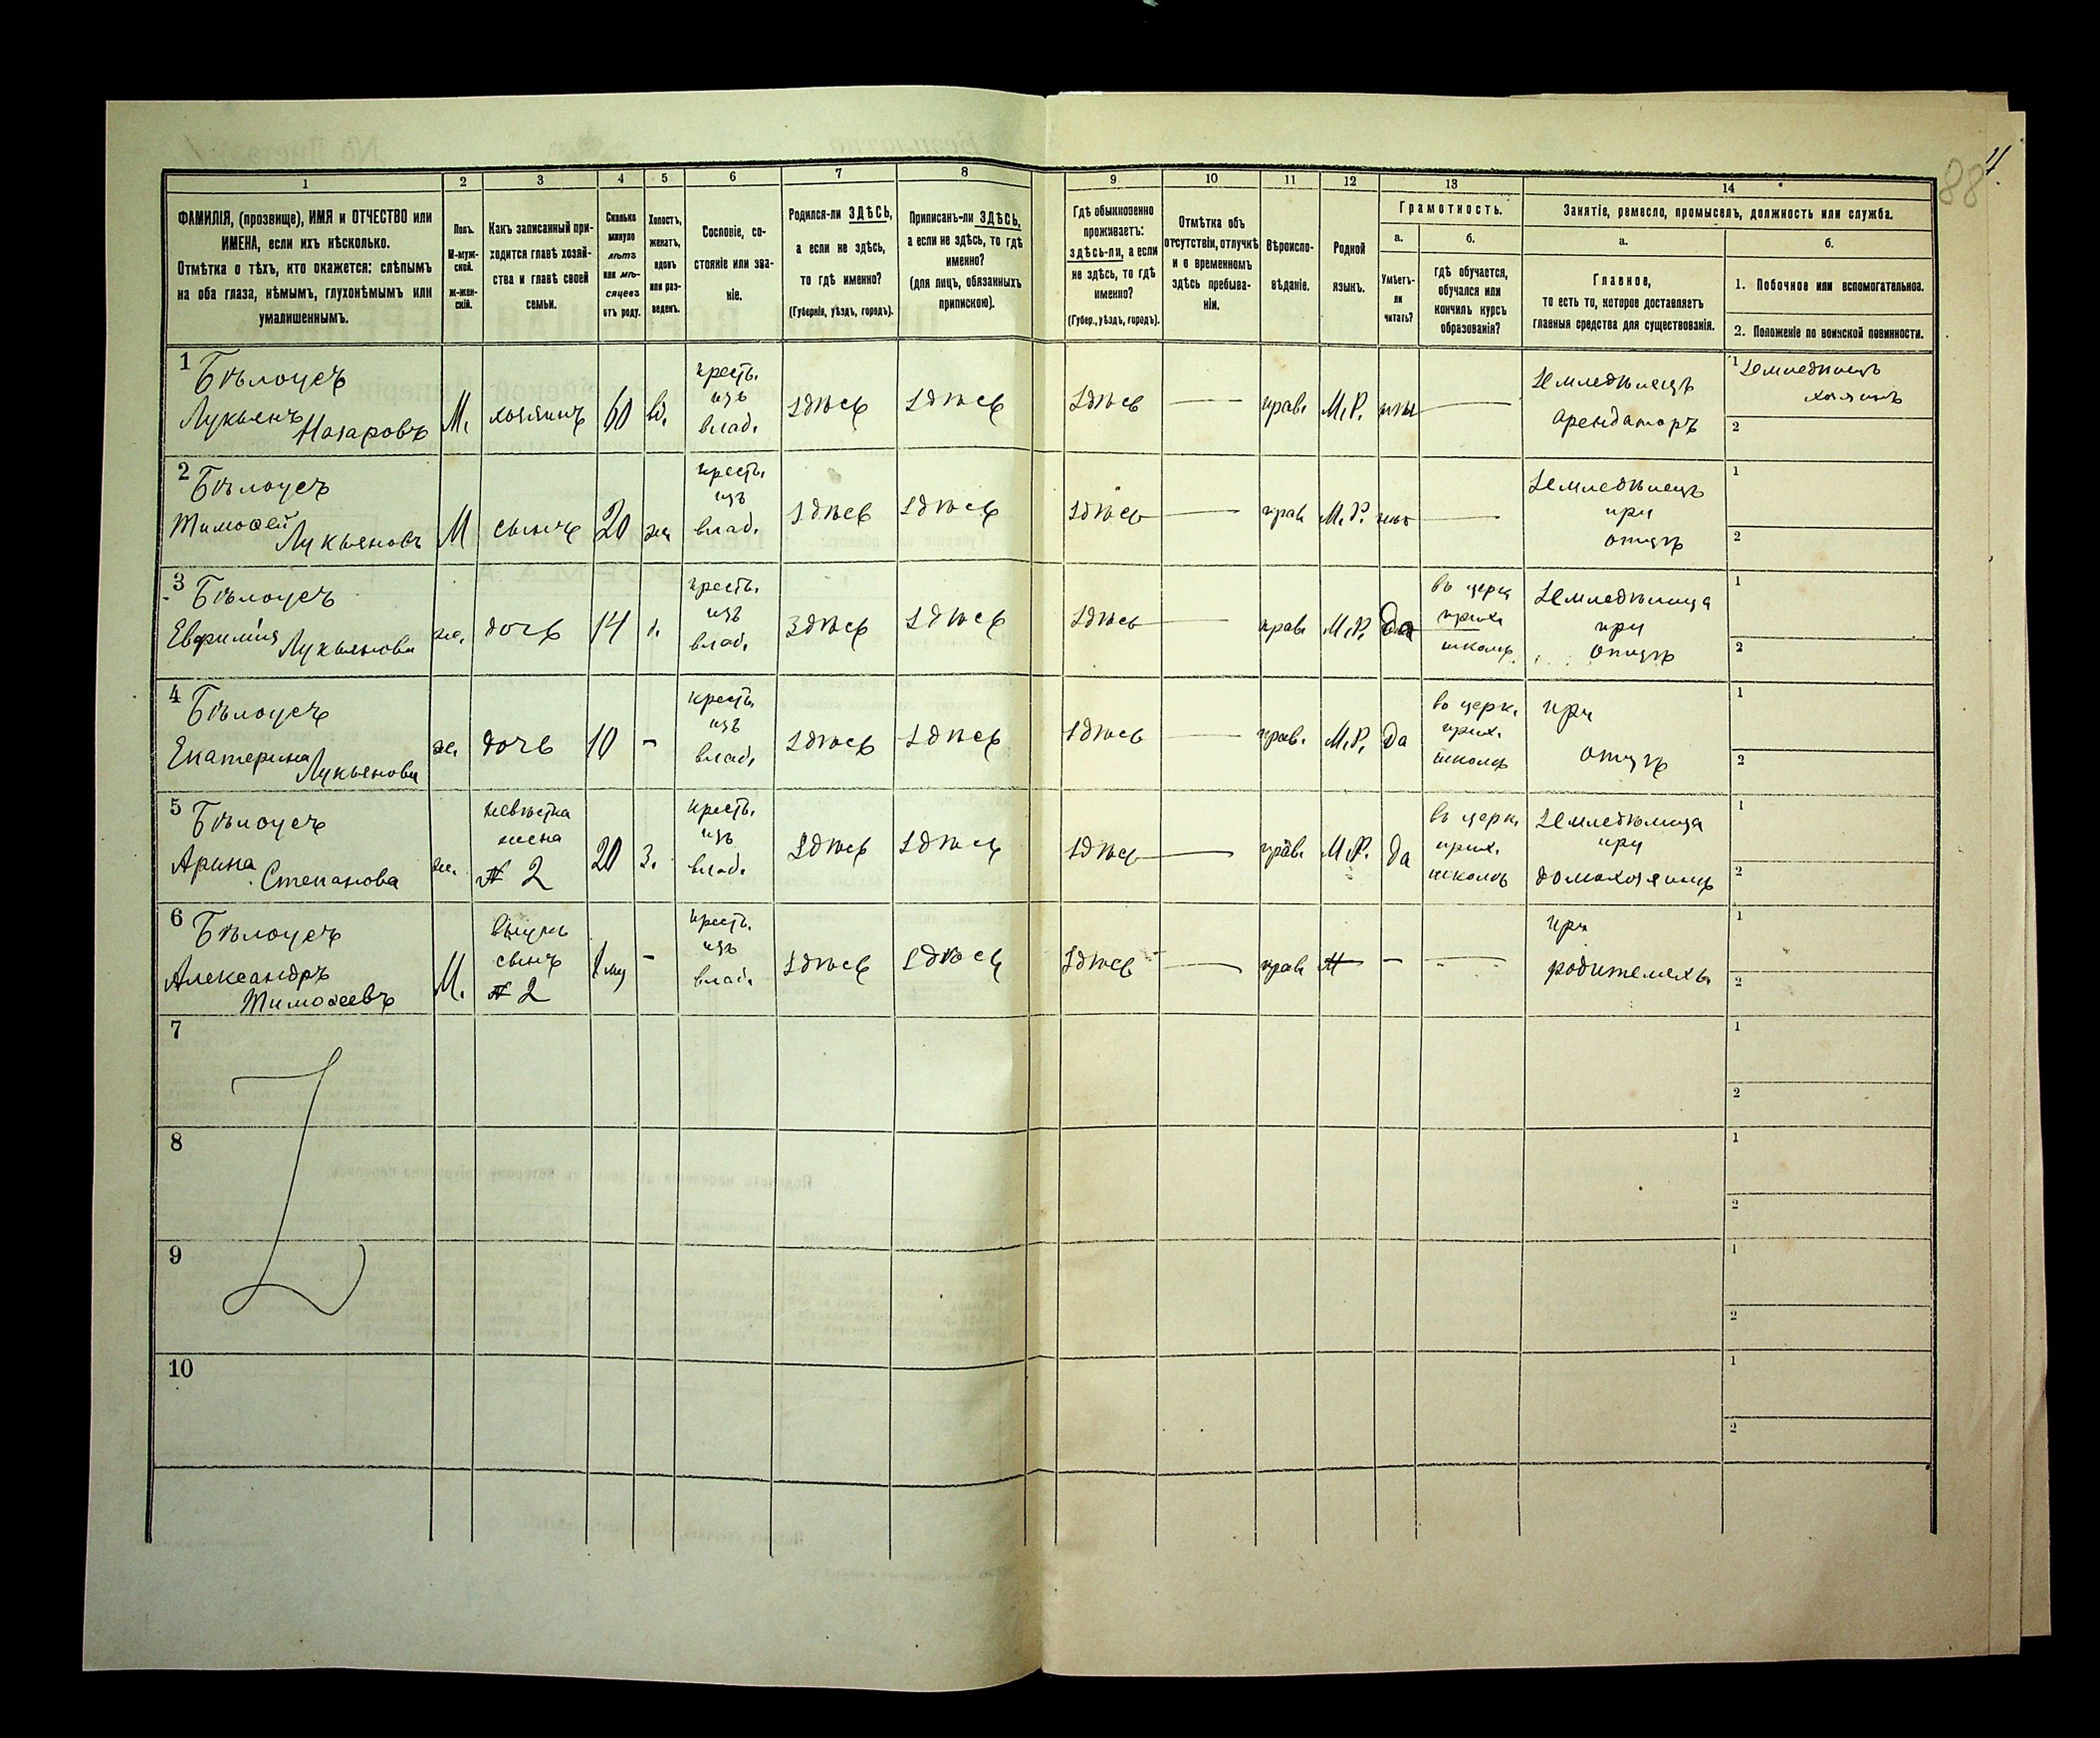 88
1 2 3 4 5 6 7 8 9 10 11 12 13 14
ФАМИЛІЯ, (прозвище), ИМЯ и ОТЧЕСТВО или
ИМЕНА, если ихъ нѣсколько.
Отмѣтка о тѣхъ, кто окажется: слѣпымъ
на оба глаза, нѣмымъ, глухонѣмымъ или
умалишеннымъ.
Полъ.
М-муж-
ской.
ж-жен-
скій.
Какъ записанный при-
ходится главѣ хозяй-
ства и главѣ своей
семьи.
Сколько
минуло
лѣтъ
или мѣ-
сяцевъ
отъ роду.
Холостъ,
женатъ,
вдовъ
или раз-
веденъ.
Сословіе, со-
стояніе или зва-
ніе.
Родился-ли ЗДѢСЬ,
а если не здѣсь,
то гдѣ именно?
(Губернія, уѣздъ, городъ).
Приписанъ-ли ЗДѢСЬ,
а если не здѣсь, то гдѣ
именно?
(для лицъ, обязанныхъ
припискою).
Гдѣ обыкновенно
проживаетъ:
здѣсь-ли, а если
не здѣсь, то гдѣ
именно?
(Губер., уѣздъ, городъ).
Отмѣтка объ
отсутствіи, отлучкѣ
и о временномъ
здѣсь пребыва-
ніи.
Вѣроиспо-
вѣданіе.
Родной
языкъ.
Грамотность.
а.
Умѣетъ-
ли
читать?
б.
гдѣ обучается,
обучался или
кончилъ курсъ
образованія?
Занятіе, ремесло, промыселъ, должность или служба.
а.
Главное,
то есть то, которое доставляетъ
главныя средства для существованія.
б.
1. Побочное или вспомогательное.
2. Положеніе по воинской повинности.
1 Бѣлоусъ
Лукьянъ
Назаровъ
М.
хозяинъ
60
вд.
крестъ.
изъ
влад.
Здѣсь
Здѣсь
Здѣсь
—
прав.
М.Р.
нѣт
—
Земледѣлецъ
арендаторъ
1 Земледѣлецъ
хозяинъ
2
2 Бѣлоусъ
Тимоѳей
Лукьяновъ
М
сынъ
20
ж
крестъ.
изъ
влад.
Здѣсь
Здѣсь
Здѣсь
—
прав
М.Р.
нѣт
—
Земледѣлецъ
при
отцѣ
1
2
3 Бѣлоусъ
Евфимія
Лукьянова
ж.
дочь
14
крестъ.
изъ
влад.
Здѣсь
Здѣсь
Здѣсь
—
прав.
М.Р.
Да
въ церк
прих.
школѣ
Земледѣлица
при
отцѣ
1
2
4 Бѣлоусъ
Екатерина
Лукьянова
ж.
дочь
10
-
крестъ.
изъ
влад.
Здѣсь
Здѣсь
Здѣсь
—
прав.
М.Р.
да
въ церк.
прих.
школѣ
при
отцѣ
1
2
5 Бѣлоусъ
Арина
Степанова
ж.
невѣстка
жена
№ 2
20
З.
крестъ.
изъ
влад.
Здѣсь
Здѣсь
Здѣсь
—
прав.
М.Р.
да
въ церк.
прих.
школѣ
Земледѣлица
при
домохозяинѣ
1
2
6 Бѣлоусъ
Александръ
Тимоѳеевъ
М.
внукъ
сынъ
№ 2
-
крестъ.
изъ
влад.
Здѣсь
Здѣсь
Здѣсь
—
прав
М
-
—
при
родителяхъ
1
2
7
1
2
8
1
2
9
1
2
10
1
2